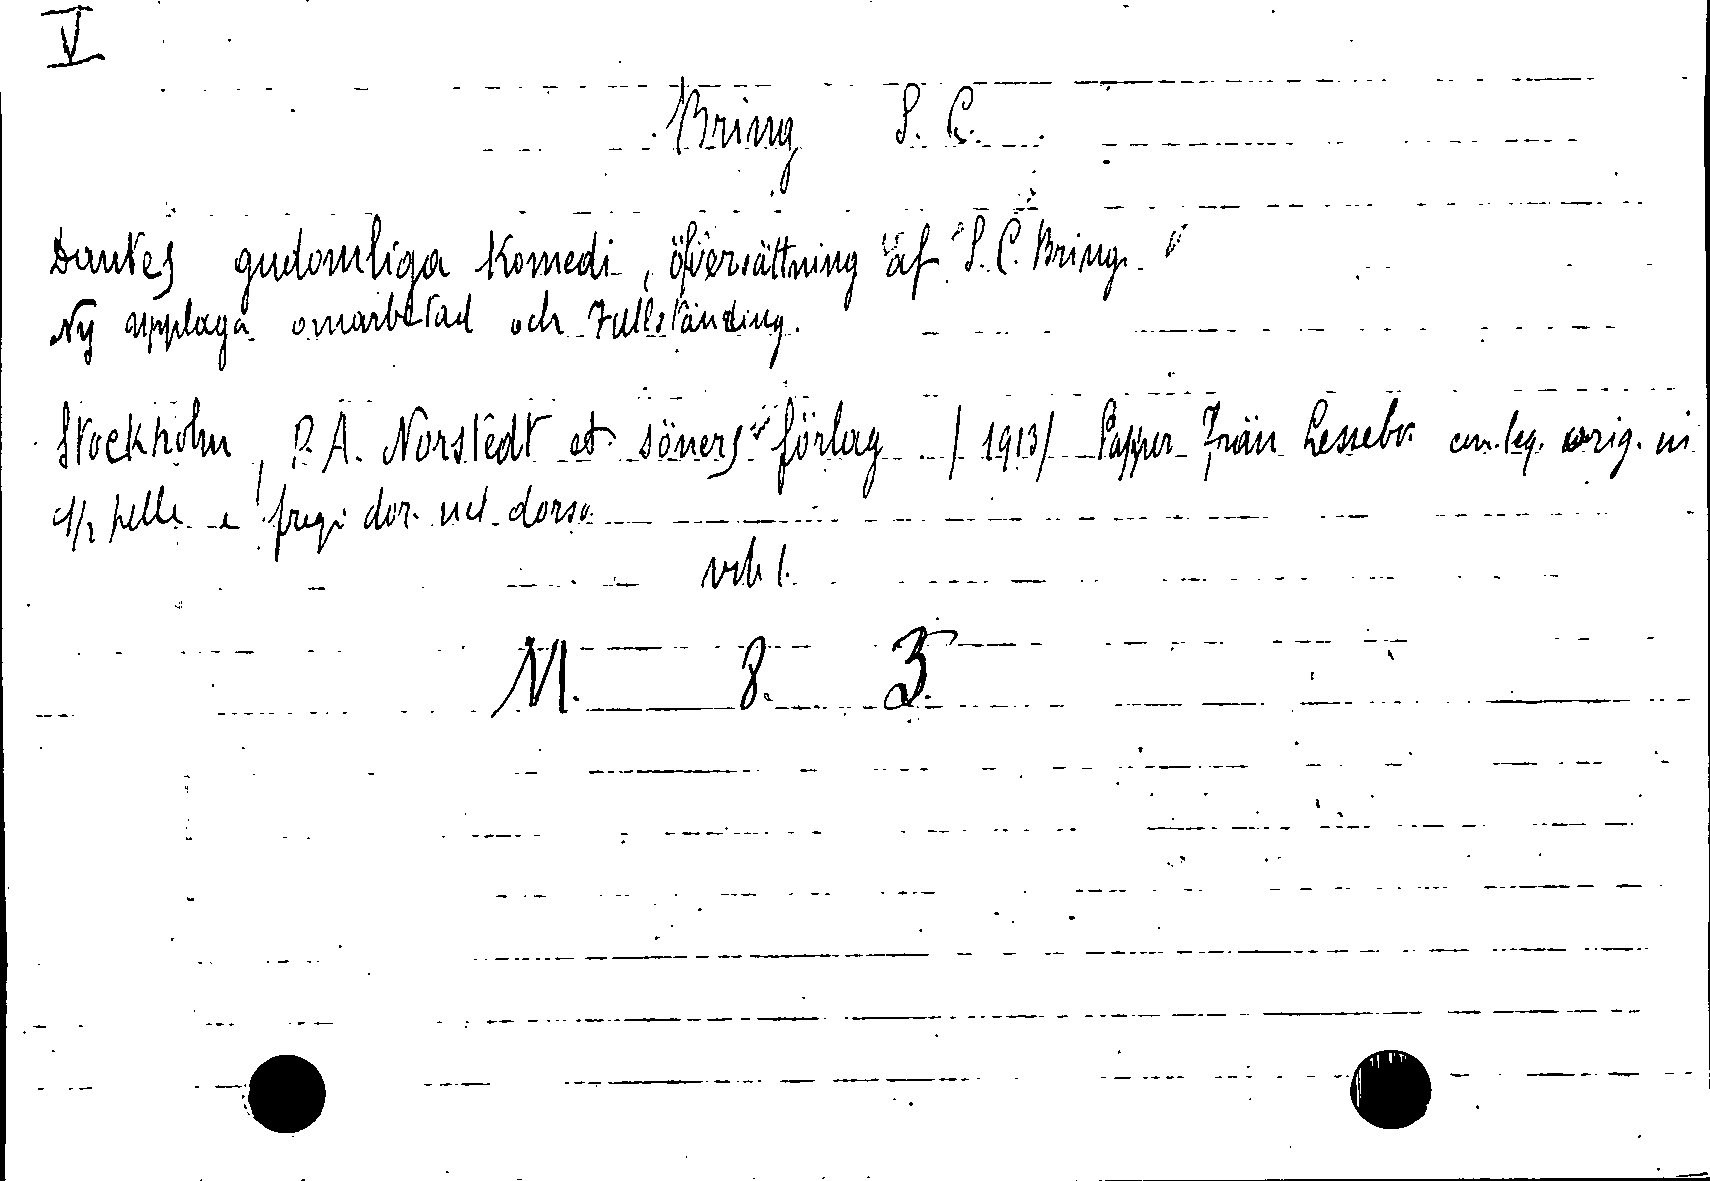 V
Bring S. C.
Dantes gudomliga Komedi, öfversättning af S. C. Bring.
Ny upplaga omarbetad och fullständing.
Stockholm, P. A. Norstedt et söners förlag /1913/ Papper från Lessebo con leg. orig. in
1/2 pelle e fregi dor. nel dorso
vol 1.
M. 8. 3.